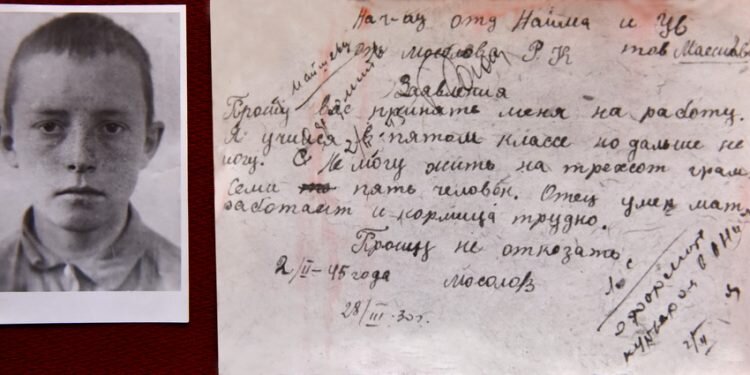 Нач-ац отд Найма и Ув
от мосолова Р.К тов
Заявления
Прошу вас принять меня на работу.
Я учийся в пятом классе но дальше не
могу. Не могу жить на трехсот грам
Семи пять человек. Отец умер мать
работает и кормица трудно.
Прошу не откозать
2/II-45 года мосолов
28/III.30г.
оформить
2/II